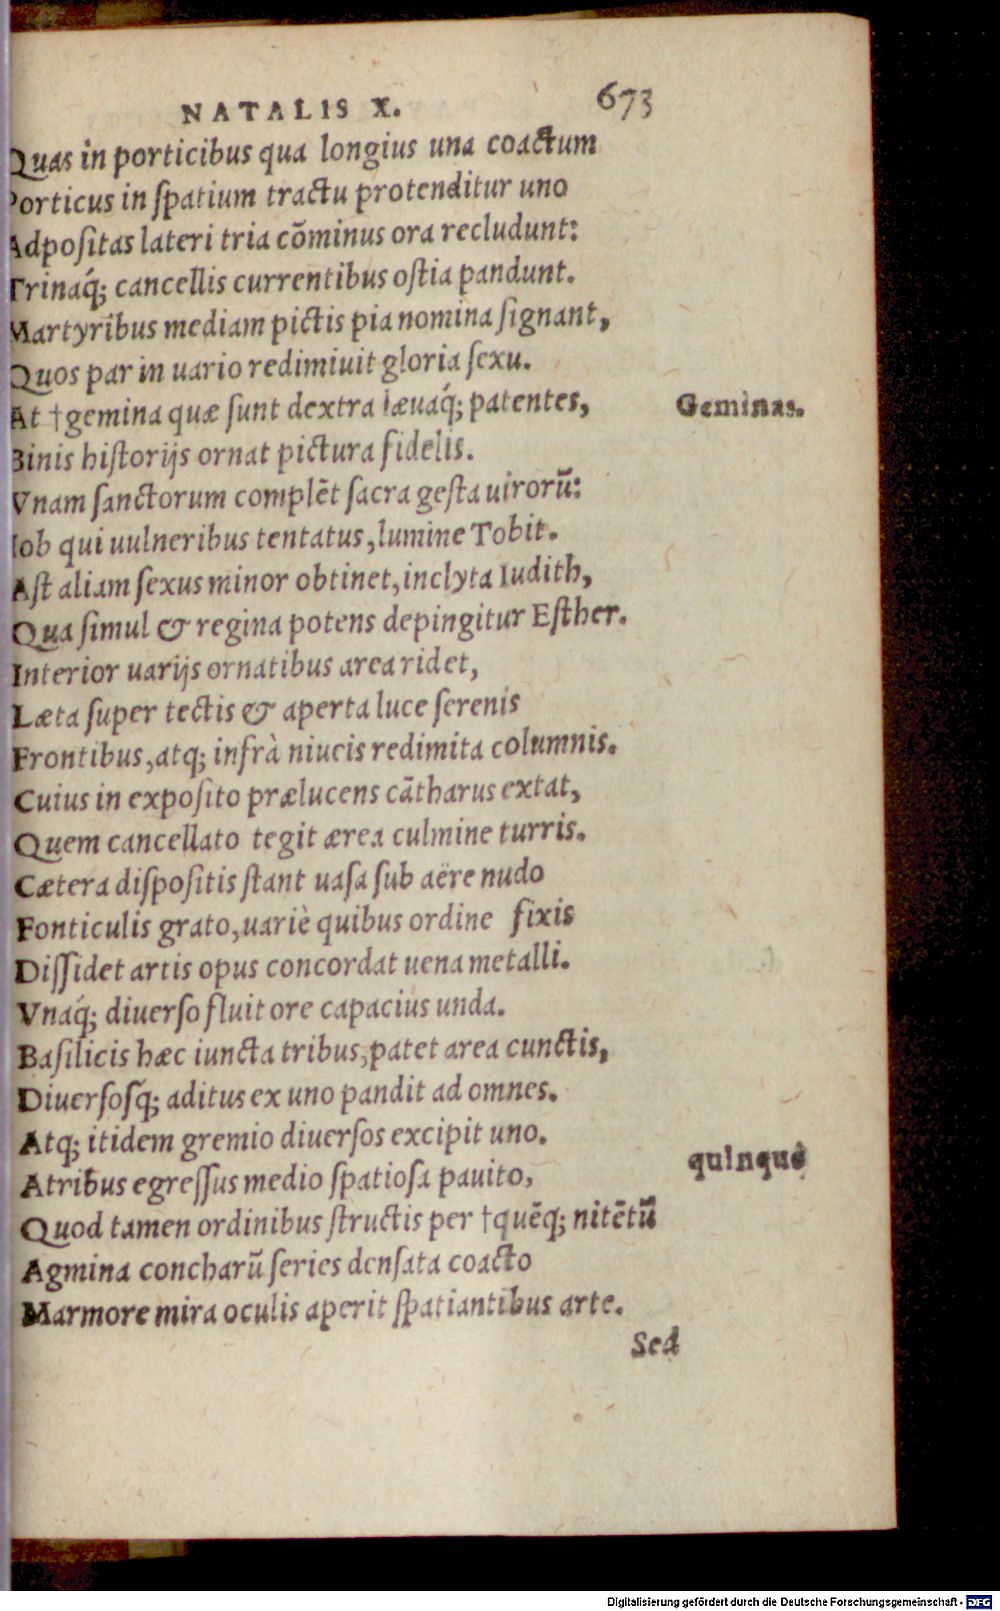 NATALIS X. 673
Quas in porticibus qua longius una coactum
Porticus in ſpatium tractu protenditur uno
Adpoſitas lateri tria cõminus ora recludunt:
Trinaq́; cancellis currentibus oſtia pandunt.
Martyribus mediam pictis pia nomina ſignant,
Quos par in uario redimiuit gloria ſexu.
At †gemina quæ ſunt dextra læuaq́; patentes, Geminas.
Binis hiſtorijs ornat pictura fidelis.
Vnam ſanctorum complẽt ſacra geſta uirorũ:
Iob qui uulneribus tentatus, lumine Tobit.
Aſt aliam ſexus minor obtinet, inclyta Iudith,
Qua ſimul & regina potens depingitur Eſther.
Interior uarijs ornatibus area ridet,
Læta ſuper tectis & aperta luce ſerenis
Frontibus, atq; infrà niueis redimita columnis.
Cuius in expoſito prælucens cãtharus extat,
Quem cancellato tegit ærea culmine turris.
Cætera diſpoſitis ſtant uaſa ſub aëre nudo
Fonticulis grato, uariè quibus ordine fixis
Diſſidet artis opus concordat uena metalli.
Vnaq́; diuerſo fluit ore capacius unda.
Baſilicis hæc iuncta tribus, patet area cunctis,
Diuerſoſq́; aditus ex uno pandit ad omnes.
Atq; itidem gremio diuerſos excipit uno.
Atribus egreſſus medio ſpatioſa pauito, quinque
Quod tamen ordinibus ſtructis per †quẽq; nitẽtũ
Agmina concharũ ſeries denſata coacto
Marmore mira oculis aperit ſpatiantibus arte.
Sed
Digitalisierung gefördert durch die Deutsche Forschungsgemeinschaft - DFG